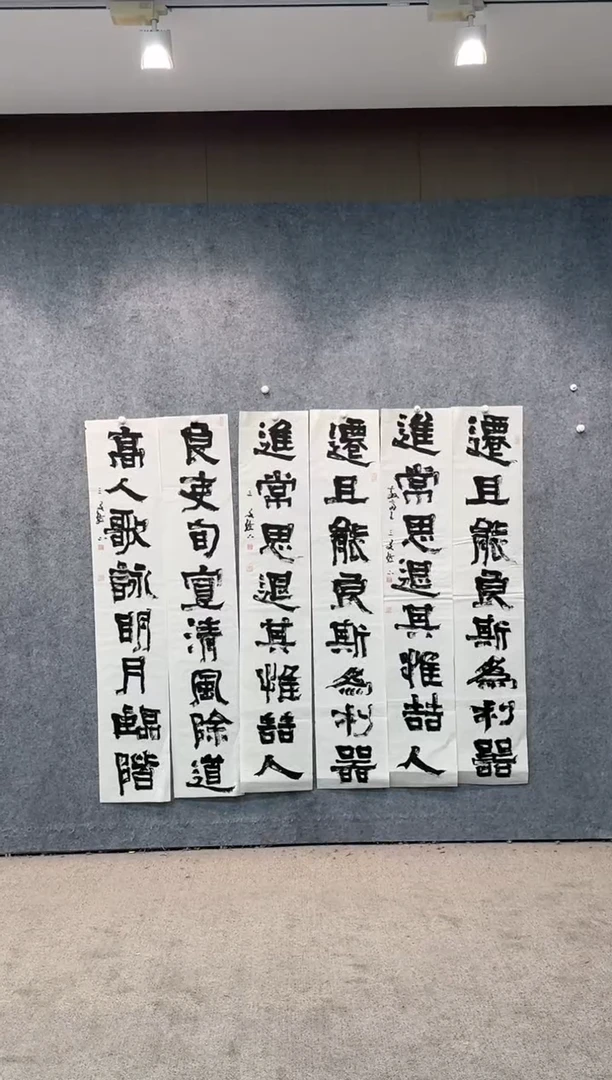 遷且能良斯為利器
進常思退其惟喆人
遷且能良斯為利器
進常思退其惟喆人
良吏旬宣清風除道
高人歌詠明月臨階